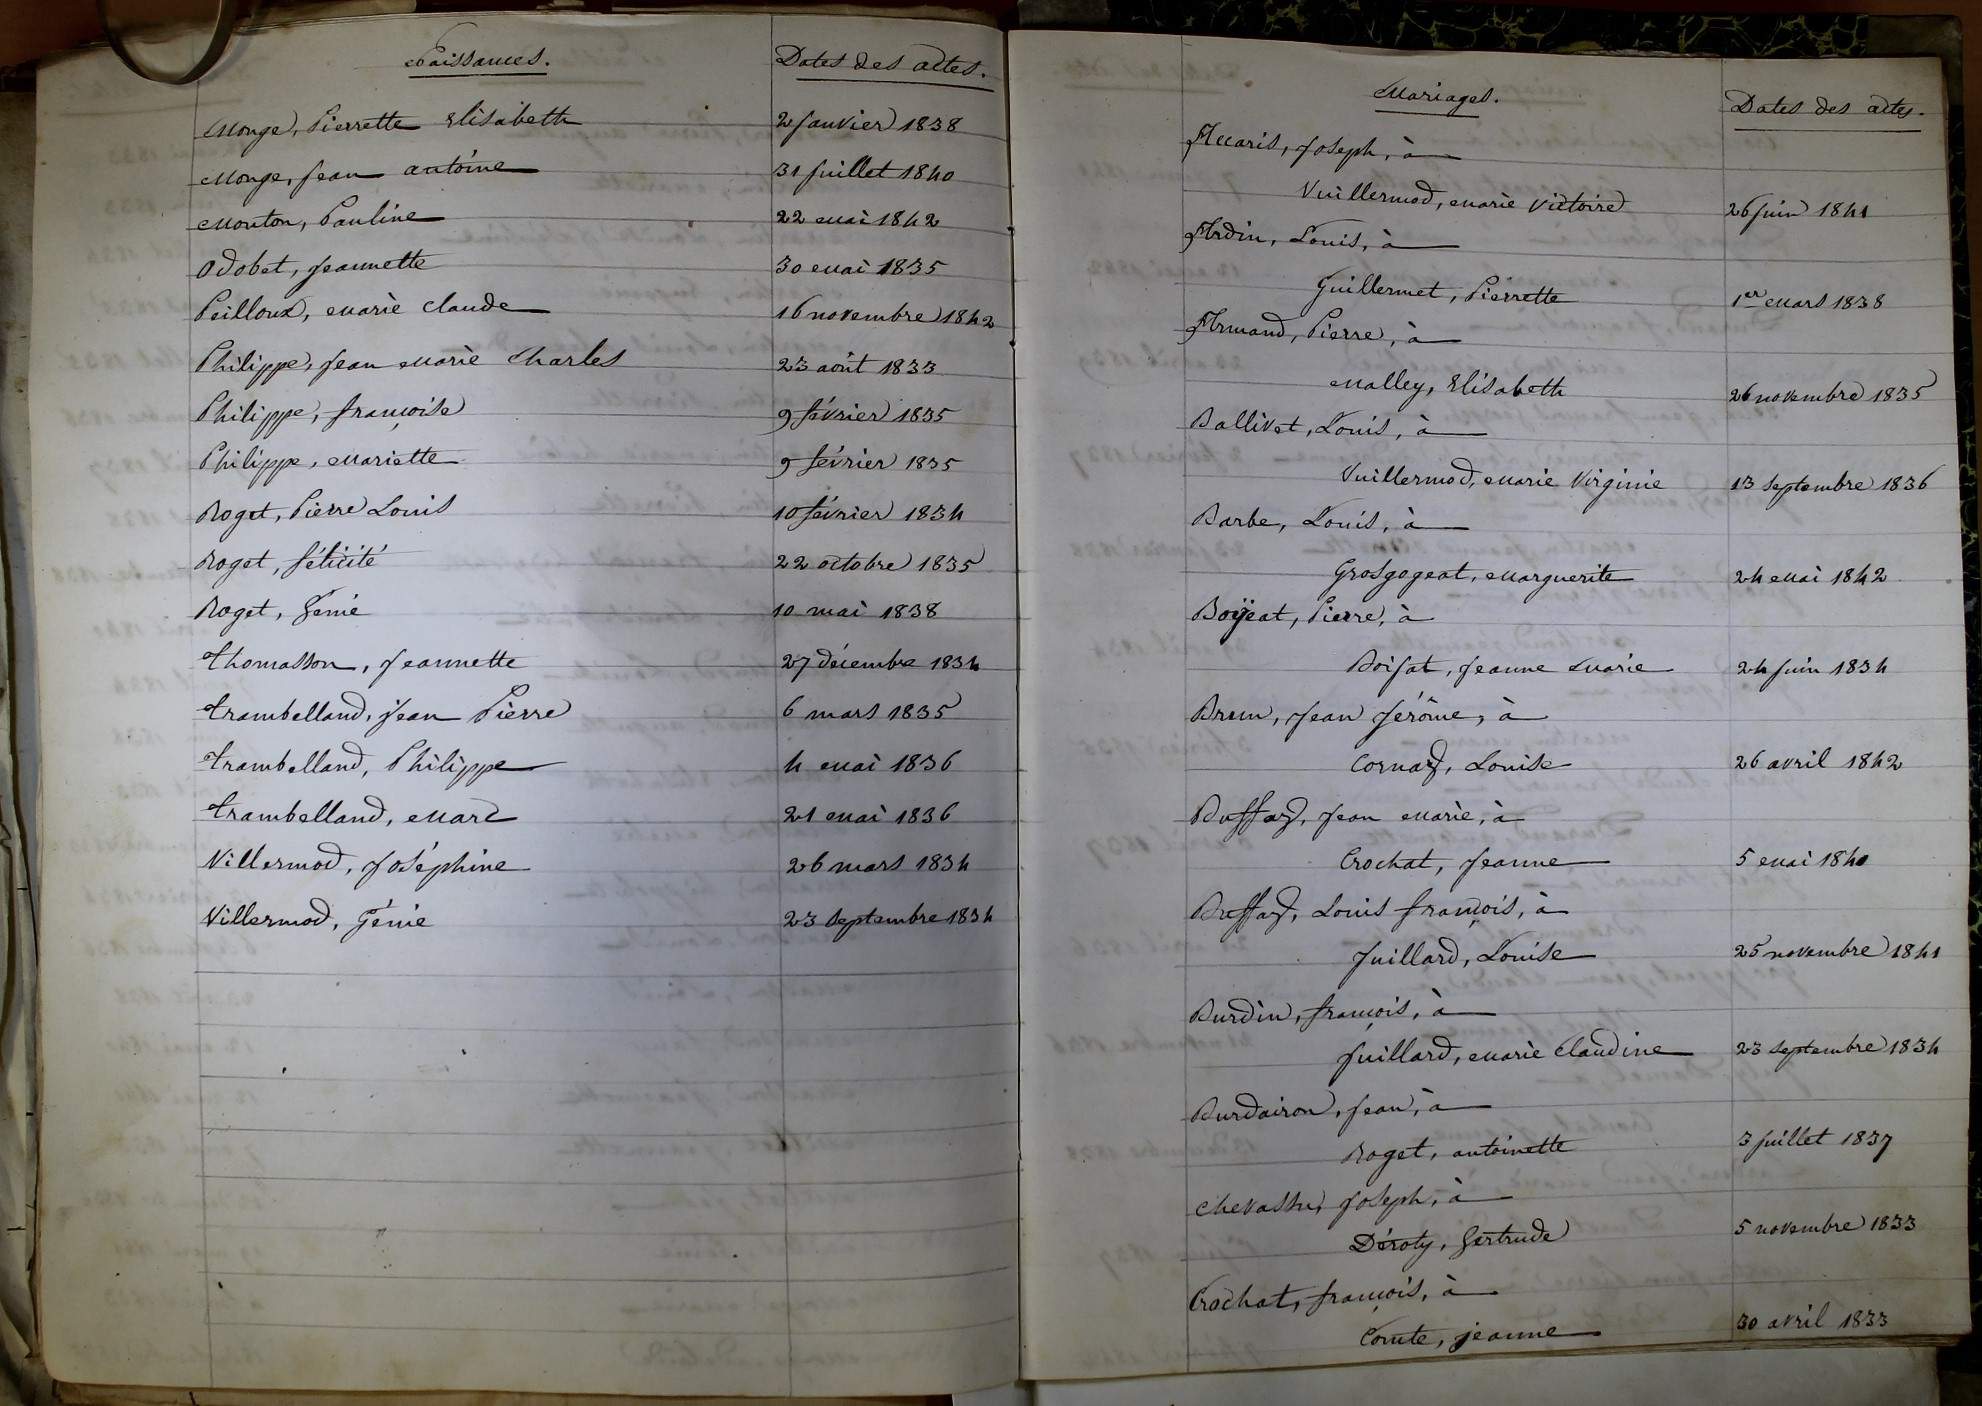 Naissances.
Dates des actes.
Monge, Pierrette Elisabeth 2 Janvier 1838
Monge, Jean antoine 31 Juillet 1840
Mouton, Pauline 22 Mai 1842
Odobet, Jeannette 30 Mai 1835
Peilloux, Marie Claude 16 novembre 1842
Philippe, Jean Marie Charles 23 août 1833
Philippe, françoise 9 février 1835
Philippe, Mariette 9 février 1835
Roget, Pierre Louis 10 février 1834
Roget, félicité 22 octobre 1835
Roget, Génie 10 mai 1838
Thomasson, Jeannette 27 décembre 1834
Trambelland, Jean Pierre 6 mars 1835
Trambelland, Philippe 4 Mai 1836
Trambelland, Marc 21 Mai 1836
Villermod, Joséphine 26 mars 1834
Villermod, Génie 23 Septembre 1834
Mariages.
Dates des actes.
Joseph, à
Vuillermod, Marie Victoire 26 Juin 1841
Ardin, Louis, à
Guillermet, Pierrette 1er Mars 1838
Armand, Pierre, à
Malley, Elisabeth 26 novembre 1835
Ballivet, Louis, à
Vuillermod, Marie Virginie 13 Septembre 1836
Barbe, Louis, à
Grosgogeat, Marguerite 24 Mai 1842
Boÿeat, Pierre, à
Boisat, Jeanne Marie 24 Juin 1834
Brun, Jean Jérôme, à
Cornaz, Louise 26 avril 1842
Buffaz, Jean Marie, à
Crochat, Jeanne 5 Mai 1840
Buffaz, Louis françois, à
Juillard, Louise 25 novembre 1841
Burdin, françois, à
Juillard, Marie Claudine 23 Septembre 1834
Burdairon, Jean, à
Roget, antoinette 3 Juillet 1837
Chevassu, Joseph, à
Déroty, Gertrude 5 novembre 1833
Crochat, françois, à
Comte, jeanne 30 avril 1833